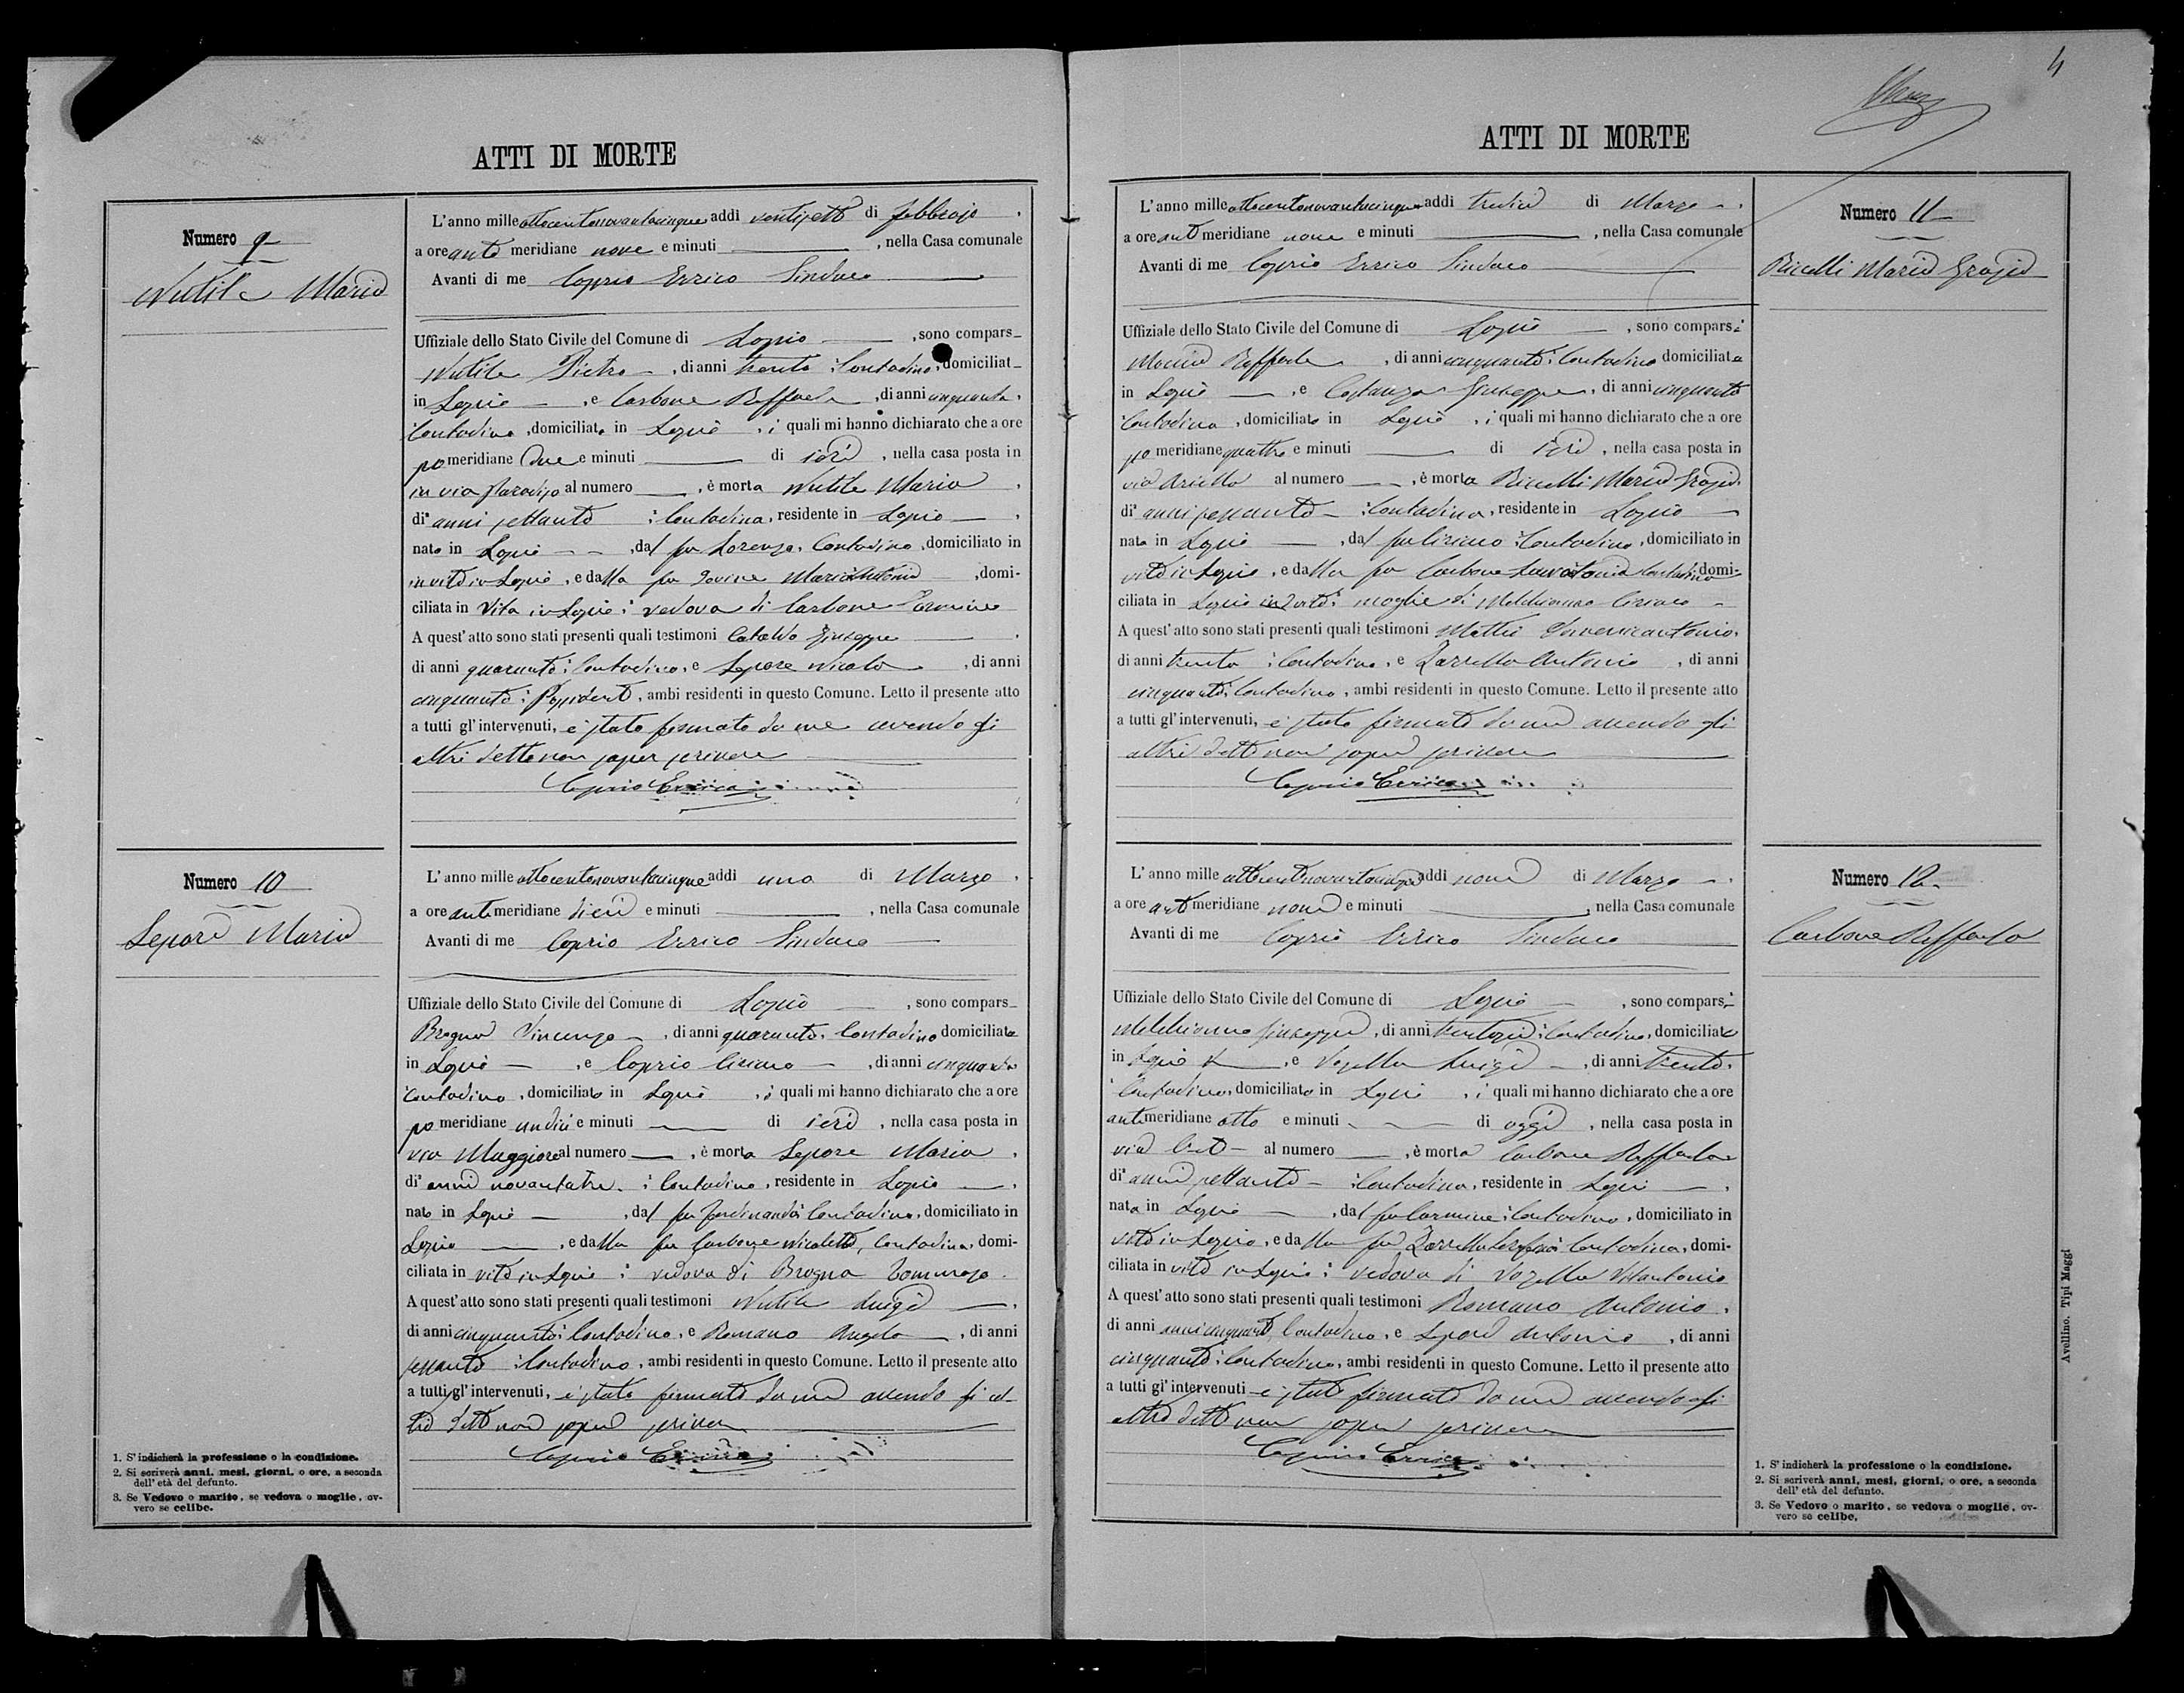 4
ATTI DI MORTE
Numero 9
Nutile Maria
L'anno mille ottocentonovantacinque addì ventisette di Febbraio.
a ore ante meridiane nove e minuti , nella Casa comunale
Avanti di me Caprio Errico Sindaco
Uffiziale dello Stato Civile del Comune di Lapio , sono compars
Nutile Pietro , di anni trenta : Contadino, domiciliat
in Lapio , e Carbone Raffaele , di anni cinquanta,
Contadino , domiciliato in Lapio , i quali mi hanno dichiarato che a ore
po meridiane due e minuti di ieri , nella casa posta in
in via Paradiso al numero , è morta Nutile Maria .
di anni settanta : Contadina, residente in Lapio .
nata in Lapio , dal fu Lorenzo, Contadino , domiciliato in
in vita in Lapio , e dalla fu Iovine Mariantonia , domi-
ciliata in Vita in Lapio : vedova di Carbone Carmine
A quest'atto sono stati presenti quali testimoni Cataldo Giuseppe .
di anni quaranta : Contadino, e Lepore Nicola , di anni
cinquanta : Possidente , ambi residenti in questo Comune. Letto il presente atto
a tutti gl'intervenuti, è stato firmato da me avendo gli
altri detto non saper scrivere
Caprio Errico
Numero 10
Lepore Maria
L'anno mille ottocentonovantacinque addì uno di Marzo .
a ore ante meridiane dieci e minuti , nella Casa comunale
Avanti di me Caprio Errico Sindaco
Uffiziale dello Stato Civile del Comune di Lapio , sono compars
Brogna Vincenzo , di anni quaranta, Contadino domiciliato
in Lapio , e Caprio Ciriaco , di anni cinquanta
Contadino , domiciliato in Lapio , i quali mi hanno dichiarato che a ore
po meridiane undici e minuti di ieri , nella casa posta in
via Maggiore al numero , è morta Lepore Maria .
di anni novantatre : Contadina , residente in Lapio .
nata in Lapio , dal fu Ferdinando: Contadino, domiciliato in
Lapio , e dalla fu Carbone Nicoletta, Contadina, domi-
ciliata in vita in Lapio : vedova di Brogna Tommaso.
A quest'atto sono stati presenti quali testimoni Nutile Luigi .
di anni cinquanta: Contadino, e Romano Angelo , di anni
sessanta : Contadino , ambi residenti in questo Comune. Letto il presente atto
a tutti gl'intervenuti, è stato firmato da me avendo gli al-
tri detto non saper scrivere
Caprio Errico
1. S'indicherà la professione o la condizione.
2. Si scriverà anni, mesi, giorni, o ore, a seconda
dell'età del defunto.
3. Se Vedovo o marito, se vedova o moglie, ov-
vero se celibe.
ATTI DI MORTE
Numero 11
Riccelli Maria Grazia
L'anno mille ottocentonovantacinque addì tredici di Marzo .
a ore ant meridiane nove e minuti , nella Casa comunale
Avanti di me Caprio Errico Sindaco
Uffiziale dello Stato Civile del Comune di Lapio , sono comparsi
Raffaele , di anni cinquanta : Contadino domiciliato
in Lapio , e Costanza Giuseppe , di anni cinquanta
Contadino , domiciliato in Lapio , i quali mi hanno dichiarato che a ore
po meridiane quattro e minuti di ieri , nella casa posta in
via Ariella al numero , è morta Riccelli Maria Grazia.
di anni sessanta : Contadina, residente in Lapio
nata in Lapio , dal fu Ciriaco : Contadino , domiciliato in
vita in Lapio , e dalla fu Carbone Contadina domi-
ciliata in Lapio in vita: moglie di Melchionno Ciriaco
A quest'atto sono stati presenti quali testimoni Mattia
di anni trenta : Contadino , e Zarrella Antonio , di anni
cinquanta: Contadino , ambi residenti in questo Comune. Letto il presente atto
a tutti gl'intervenuti, è stato firmato da me avendo gli
altri detto non saper scrivere
Caprio Errico
Numero 12.
Carbone Raffaela
L'anno mille ottocentonovantacinque addì nove di Marzo .
a ore ant meridiane nove e minuti , nella Casa comunale
Avanti di me Caprio Errico Sindaco
Uffiziale dello Stato Civile del Comune di Lapio , sono comparsi
Melchionno Giuseppe , di anni : Contadino, domiciliato
in Lapio , e Vozella Luigi , di anni trenta,
Contadino, domiciliato in Lapio , i quali mi hanno dichiarato che a ore
anti meridiane otto e minuti di oggi , nella casa posta in
via al numero , è morta Carbone Raffaela
di anni settanta : Contadina , residente in Lapio .
nata in Lapio , dal fu Carmine : Contadino , domiciliato in
vita in Lapio, e dalla fu Zarrella Contadina, domi-
ciliata in vita in Lapio : vedova di Vozella Vitantonio
A quest'atto sono stati presenti quali testimoni Romano Antonio .
di anni anni cinquanta, Contadino, e Lepore Antonio , di anni
cinquanta: Contadino, ambi residenti in questo Comune. Letto il presente atto
a tutti gl'intervenuti è stato firmato da me avendo gli
altri detto non saper scrivere
Caprio Errico
1. S'indicherà la professione o la condizione.
2. Si scriverà anni, mesi, giorni, o ore, a seconda
dell'età del defunto.
3. Se Vedovo o marito, se vedova o moglie, ov-
vero se celibe.
Avellino. Tipi Maggi